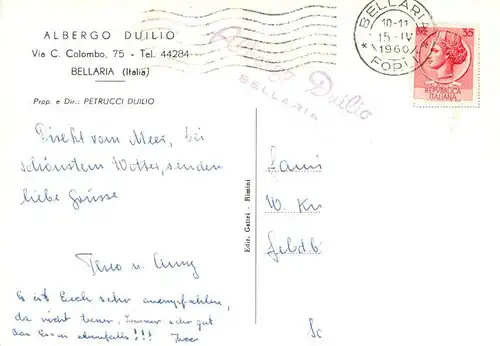 ALBERGO DUILIO
Via C. Colombo, 75 - Tel. 44284
BELLARIA (Italia)
Prop. e Dir.: PETRUCCI DUILIO
Direkt vom Meer, bei
schönstem Wetter, senden
liebe Grüsse
Es ist Euch sehr zu empfehlen,
da nicht teuer, immer sehr gut
das Essen ebenfalls!!!
Ediz. Gattei - Rimini
BELLARIA
10-11
15-IV
1960
FORLI
Albergo Duilio
BELLARIA
35
REPUBBLICA
ITALIANA
Fami
W. Kn
Feldb